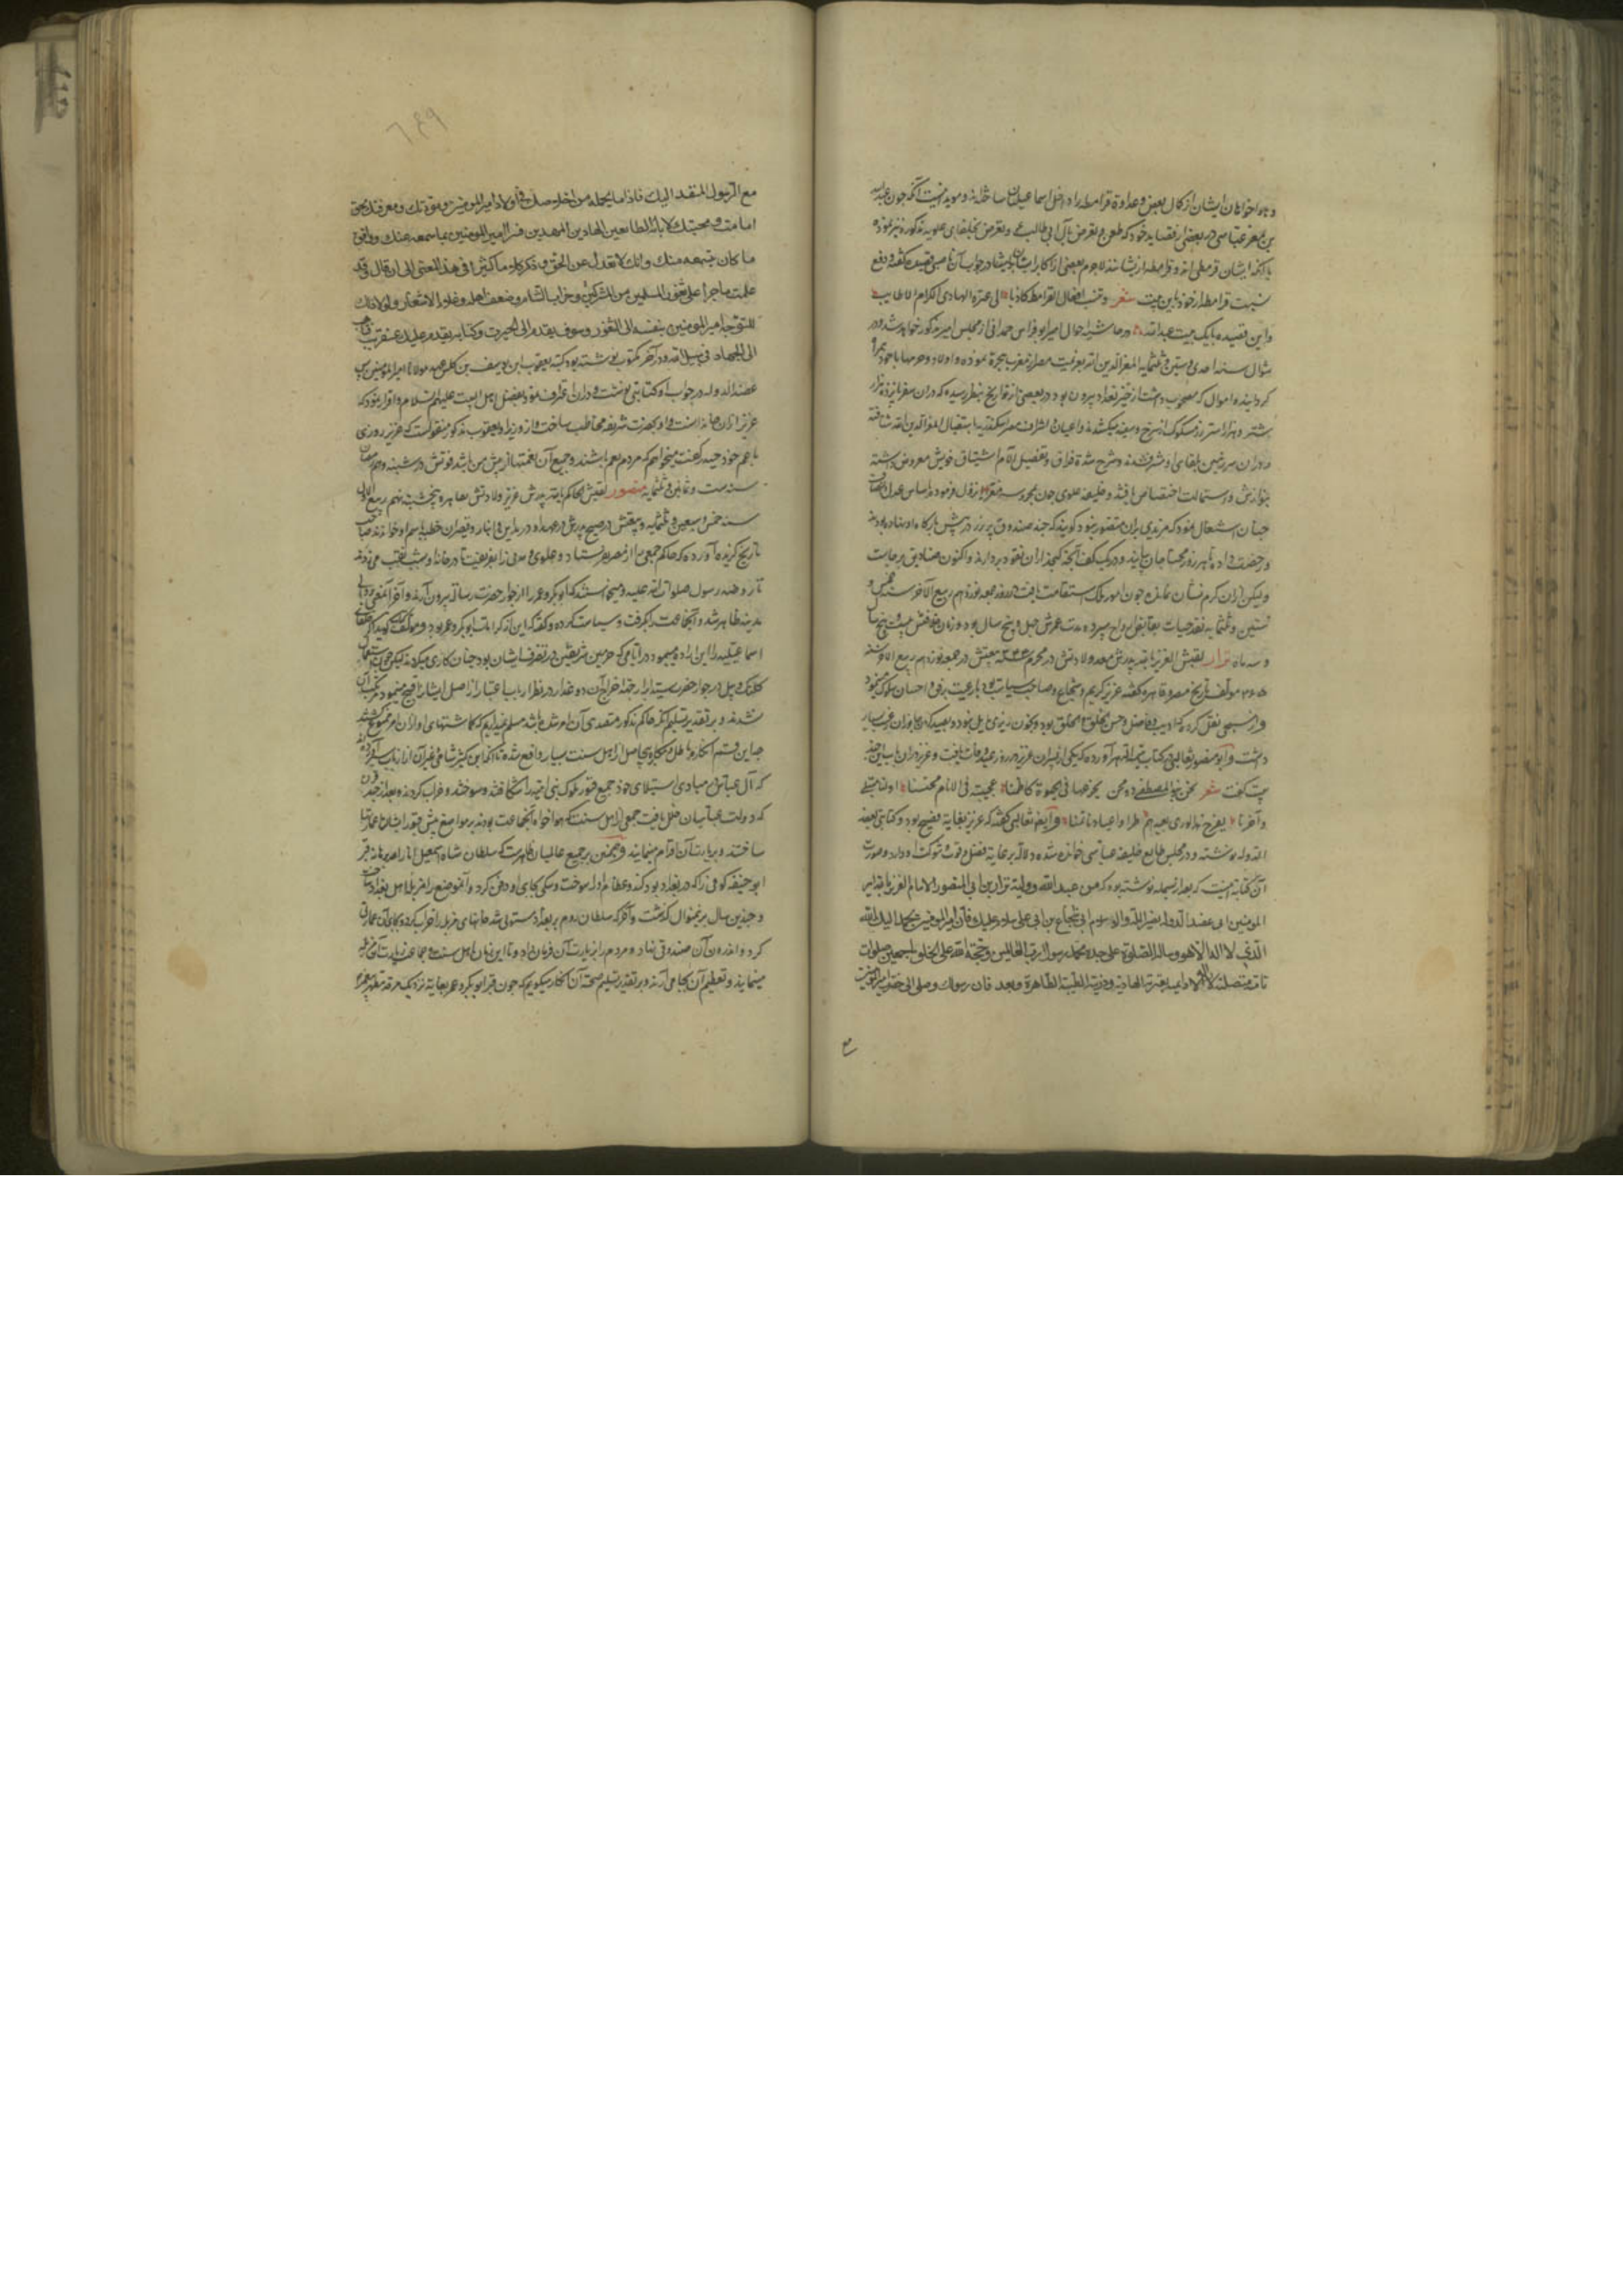 و هواخواهان ایشان از کمال بغض و عداوة قرامطه را داخل اسماعیلیان ساخته‌اند و موید اینست آنکه چون عبدالله
بن معتز عباسی در بعضی از قصاید خود که طعن و تعرض بآل ابی طالب و تعرض بخلفای علویه مذکوره نیز نموده
با آنکه ایشان قرمطی‌اند و قرامطه از یشانند لاجرم بعضی از اکابر ایشان در جواب آن ناصبی قصیده گفته و دفع
نسبت قرامطه از خود باین بیت شعر و تنسب افعال القرامط کاذبا الی عترة الهادی الکرام الاطایب
و این قصیده بایک بیت عبدالله در حاشیه احوال امیر ابو فراس حمدانی از مجلس امیر مذکور خواهد شد و در
شوال سنه احدی و ستین و ثلثمایه المعز لدین الله بعزیمت مصر از مغرب هجرة نموده و اولاد و حرمها با خود همراه
گردانیده و اموال که مصحوب داشت از حیز تعداد بیرون بود در بعضی از تواریخ بنظر رسیده که در ان سفر پانزده هزار
شتر و هزار استر زر مسکوک از سرخ و سفید میکشیدند و اعیان و اشراف مصر باسکندریه باستقبال المعز لدین الله شتافته
در ان سرزمین بلقای او مشرف شدند و شرح شدة فراق و تفصیل آلام اشتیاق خویش معروض داشته
بنوازش و استمالت اختصاص یافتند و خلیفه علوی چون بمحروسه مصر نزول فرمود باساس عدل و انصاف
چنان اشتغال نمود که مزیدی بران متصور نبود گویند که چند صندوق پر زر در پیش بارگاه او نهاده بودند
و رخصت داده تا هر روز محتاجان بیایند و در یک کف آنچه گنجد از ان نقود بردارند و اکنون صنادیق برجاست
ولیکن از ان کرم نشان نمانده چون امور ملک استقامت یافت در روز جمعه نوزدهم ربیع الآخر سنه خمس و
ستین و ثلثمایه نقد حیات بقابض ارواح سپرد مدت عمرش چهل و پنج سال بود و زمان خلافتش بیست و پنج سال
و سه ماه نزار لقبش العزیز بالله پدرش معد ولادتش در محرم ۳۴۴ بیعتش در جمعه نوزدهم ربیع الآخر سنه
۳۶۵ مولف تاریخ مصر و قاهره گفته عزیز کریم و شجاع و صاحب سیاست بود با رعیت برفق و احسان سلوک مینمود
و از مسبحی نقل کرده که ادیب و فاضل و حسن الخلق و الخلق بود و بخون ریزی مایل نبود و بصید کردن جانوران غریب بسیار
داشت و ابو منصور ثعالبی در کتاب یتیمة الدهر آورده که یکی از پسران عزیز در روز عید وفات یافت و عزیز در ان باب این چند
بیت گفت شعر نحن بنو المصطفی ذوو محن یجرعها فی الحیوة کاظمنا عجیبة فی الانام محنتنا اولنا مبتلی
و آخرنا یفرح هذا الوری بعیدهم طرا و اعیادنا مآتمنا و ایضا ثعالبی گفته که عزیز بغایة فصیح بود و کتابتی بعضد
الدوله نوشته و در مجلس طایع خلیفه عباسی خوانده شده دلالت بر غایة فضل و قوت و شوکت او دارد و صورت
آن کتابت اینست که بعد از بسمله نوشته بود که من عبد الله و ولیه نزار بن ابی المنصور الامام العزیز بالله امیر
المومنین الی عضد الدوله نصیر الملة والدین ابی شجاع بن ابی علی سلام علیک فان امیر المومنین یحمد الیک الله
الذی لا اله الا هو و یساله الصلوة علی جده محمد رسول رب العالمین و حجة الله علی الخلق اجمعین صلوات
تامة متصلة بعترته الهادیة و ذریته الطیبة الطاهرة و بعد فان رسولک وصل الی حضرة امیر المومنین
مع
مع الرسول المنفذ الیک فاذا ما یحمله من اخلاصک فی ولاء امیر المومنین و مودتک و معرفتک بحق
امامته و محبتک لابائه الطایعین الهادین المهدیین فسر امیر المومنین بما سمعه عنک و وافق
ما کان یتوهمه منک و انک لا تعدل عن الحق و ذکر کلاما کثیرا فی هذا المعنی الی ان قال و قد
علمت ما جرا علی ثغور المسلمین من المشرکین و خراب الشام و ضعف اهله و غلو الاسعار ولولا ذلک
لتوجه امیر المومنین بنفسه الی الثغور و سوف یقدم الی الحیرة و کتابه یقدم علیک عن قریب فتاهب
الی الجهاد فی سبیل الله و در آخر مکتوب نوشته بود کتبه یعقوب ابن یوسف بن کلس عبد مولانا امیر المومنین پس
عضد الدوله در جواب او کتابتی نوشت و دران اعتراف نمود بفضل اهل البیت علیهم السلام و اقرار نمود که
عزیز ازان خاندانست و او را بحضرت شریفه مخاطب ساخت و از وزیر او یعقوب مذکور منقولست که عزیز روزی
با عم خود حیدر گفت میخواهم که مردم بنعم باشند و جمیع آن نعمتها از پیش من باشد فوتش در شنبه دهم رمضان
سنه ست و ثمانین و ثلثمایه منصور لقبش الحاکم بالله پدرش عزیز ولادتش بقاهره پنجشنبه نهم ربیع الاول
سنه خمس و سبعین و ثلثمایه و بیعتش در صبح پدرش در عهد او در مداین و انبار و بصره ان خطبه باسم او خواندند صاحب
تاریخ گزیده آورده که حاکم جمعی را از مصر بفرستاد و علوی مدنی را بفریفت تا در خانه او بشب نقب می زدند
تا روضه رسول صلوات الله علیه و میخواستند که ابوبکر و عمر را از جوار حضرت رسالة بیرون آرند و آخر آنمعنی بر والی
مدینه ظاهر شد و آنجماعت را بگرفت و سیاست کرده و گفته که این از کرامات ابوبکر و عمر بود و مولف گوید اگر خلفای
اسماعیلیه را این اراده میبود در ایامی که حرمین شریفین در تصرف ایشان بود چنان کاری میکردند
شدند و بر تقدیر تسلیم آنکه حاکم مذکور متصدی آن امر شده باشد مسلم نمیداریم که گماشتهای او ازان امر ممنوع گشتند
چه این قسم افکار باطل و حکایت بی اصل از اهل سنت بسیار واقع شده تا آنکه ابن کثیر شامی و غیر آن از ارباب سیر آورده‌اند
که آل عباس در مبادی استیلای خود جمیع قبور ملوک بنی امیه را شکافتند و سوختند و خراب کردند و بعد از چند قرن
که دولت عباسیان خلل یافت جمعی از اهل سنت که هواخواه آنجماعت بودند بر مواضع نبش قبور ایشان عمارتها
ساختند و بزیارت آن اقدام مینمایند و همچنین بر جمیع عالمیان ظاهرست که سلطان شاه اسمعیل انار الله برهانه قبر
ابو حنیفه کوفی را که در بغداد بود کند و عظام او را سوخت و سگی بجای او دفن کرد و آنموضع را مزبله اهل بغداد ساخت
و چندین سال بر اینمنوال گذشت و آخر که سلطان روم بر بغداد مستولی شد خانهای مزبله را خراب کرده و بجای آن عمارتی
کرد و اندرون آن صندوقی نهاد و مردم را بزیارت آن فرمان داد و تا این زمان اهل سنت و جماعت زیارت آن مزبله
مینمایند و تعظیم آن بجا می آرند و بر تقدیر تسلیم صحة آن انکار میگویم که چون قبر ابوبکر و عمر بغایة نزدیک مرقد مطهر